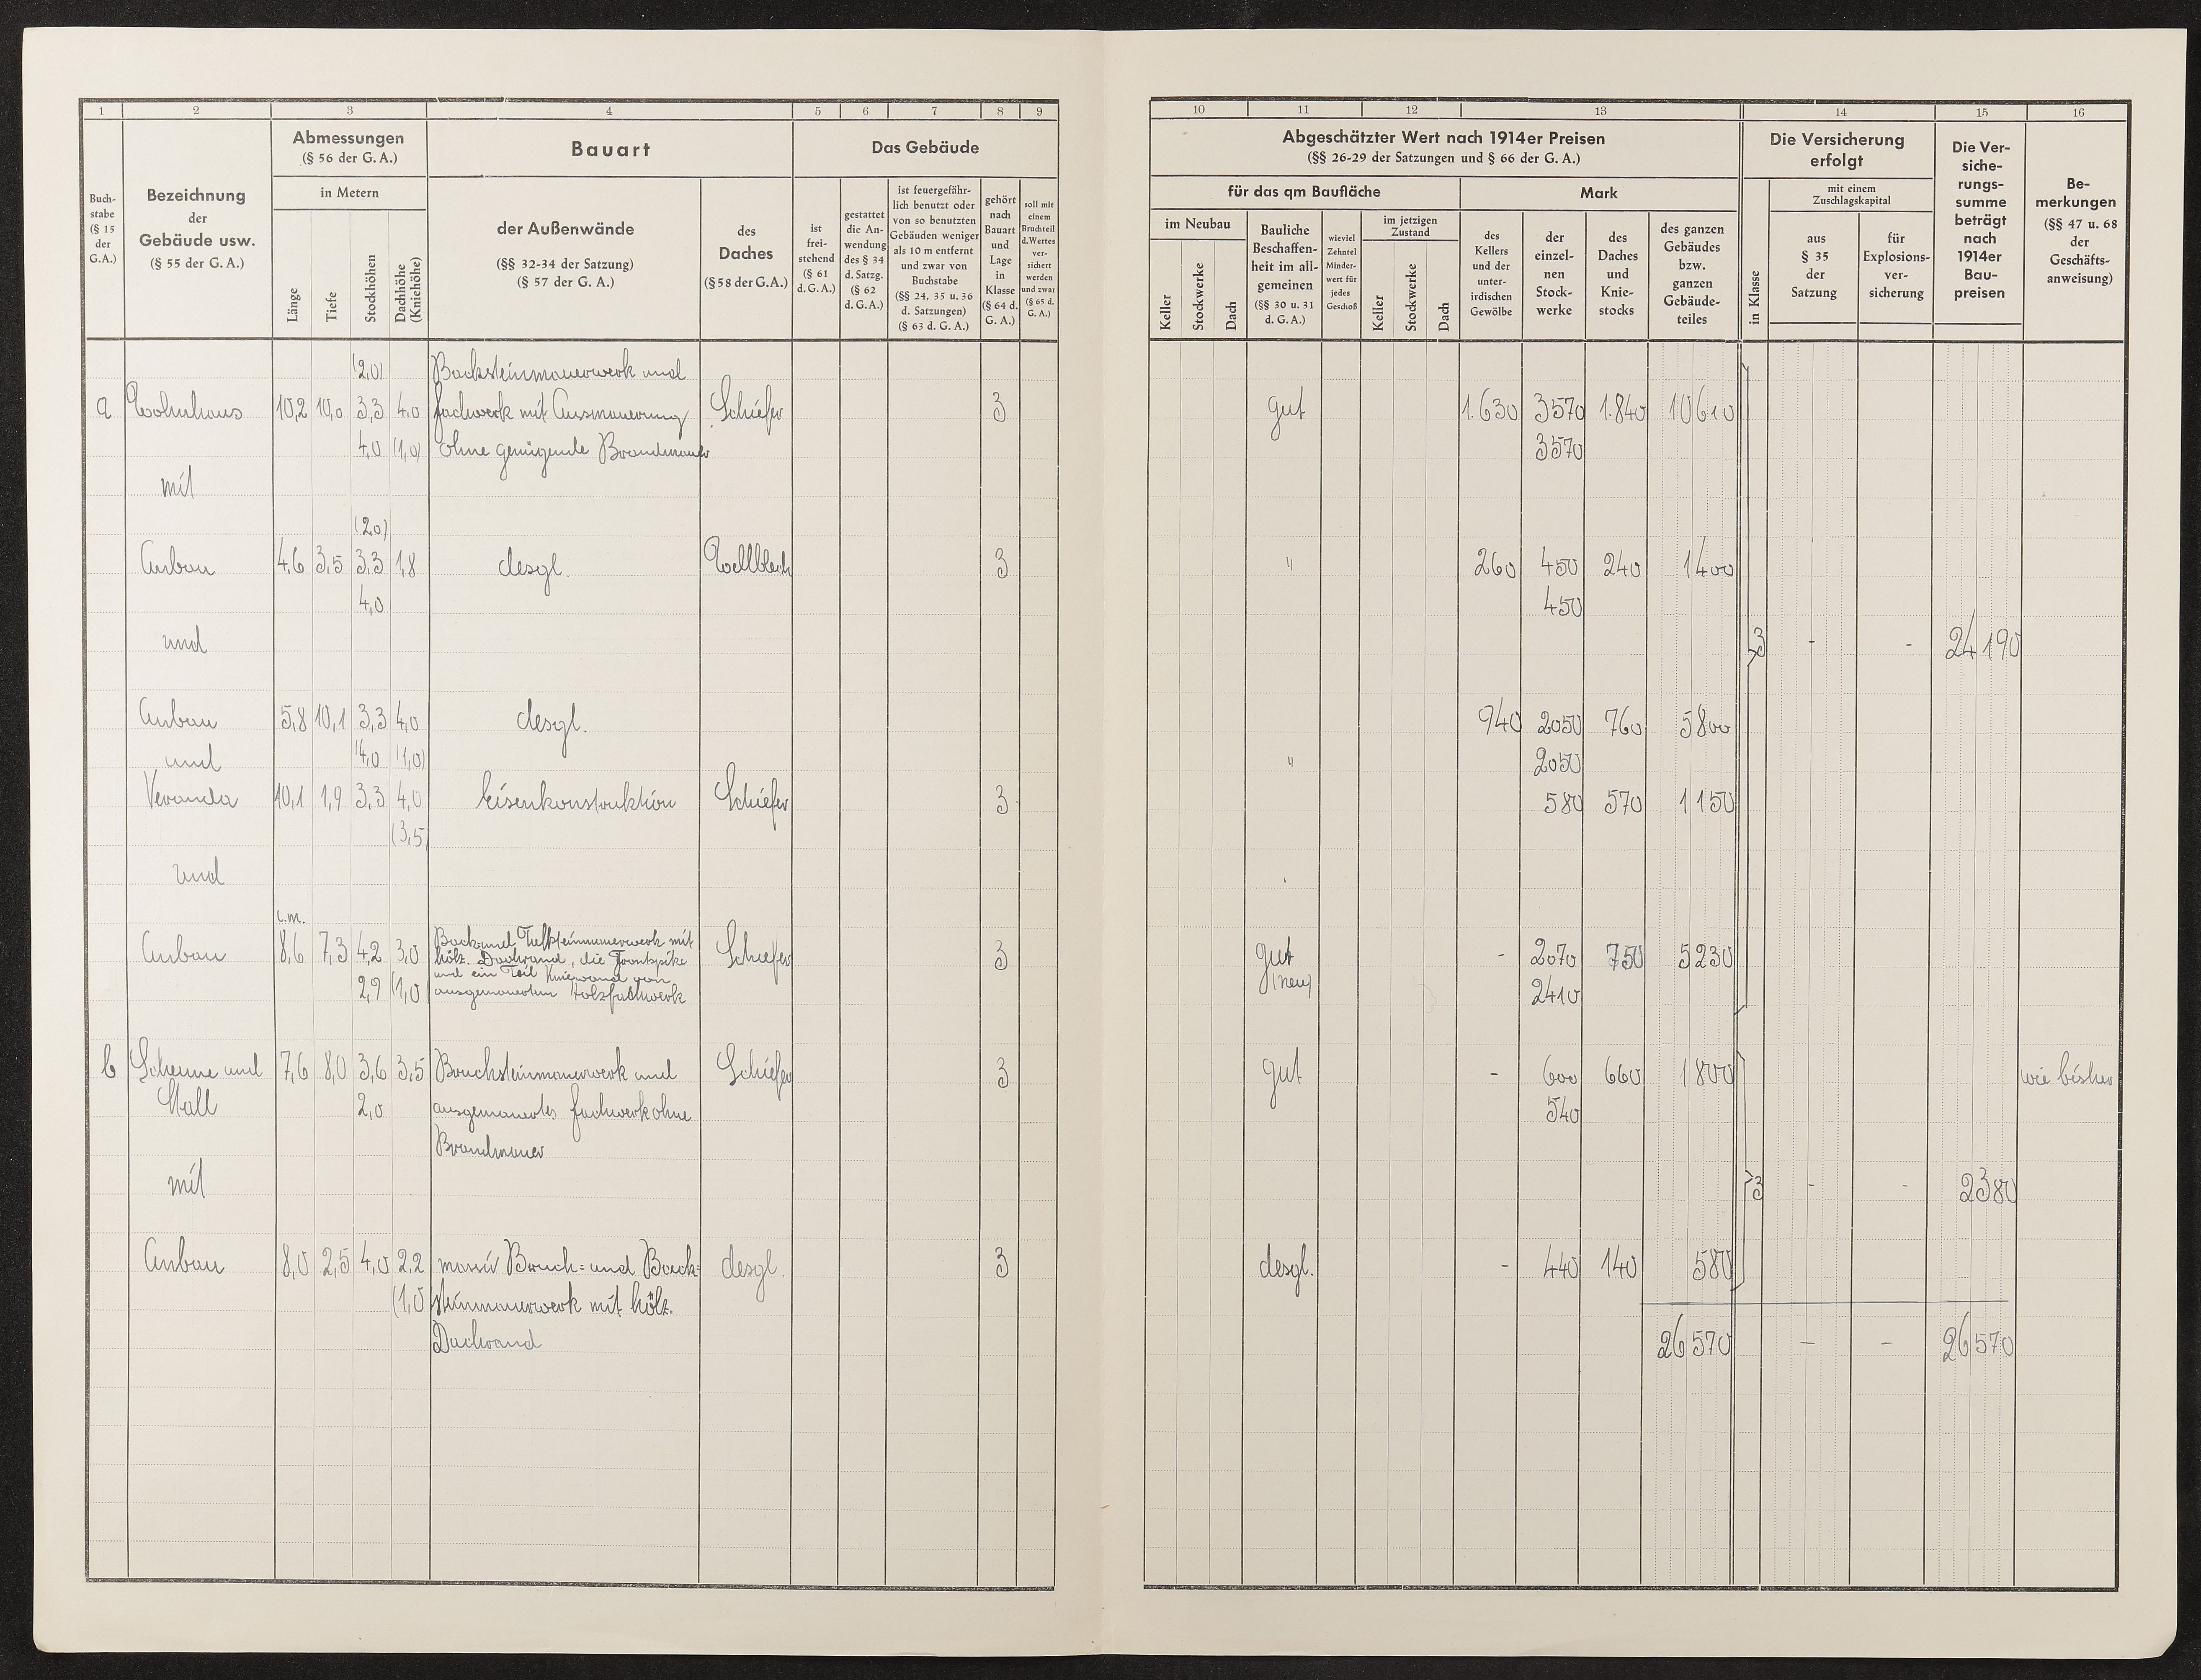 1 2 3 4 5 6 7 8 9
Abmessungen
(§ 56 der G. A.)
in Metern
Bauart
Das Gebäude
Buch-
stabe
(§ 15
der
G.A.)
Bezeichnung
der
Gebäude usw.
(§ 55 der G. A.)
Länge
Tiefe
Stockhöhen
Dachhöhe
(Kniehöhe)
der Außenwände
(§§ 32-34 der Satzung)
(§ 57 der G. A.)
des
Daches
(§ 58 der G. A.)
ist
frei-
stehend
(§ 61
d. G. A.)
gestattet
die An-
wendung
des § 34
d. Satzg.
(§ 62
d. G. A.)
ist feuergefähr-
lich benutzt oder
von so benutzten
Gebäuden weniger
als 10 m entfernt
und zwar von
Buchstabe
(§§ 24, 35 u. 36
d. Satzungen)
(§ 63 d. G. A.)
gehört
nach
Bauart
und
Lage
in
Klasse
(§ 64 d.
G. A.)
soll mit
einem
Bruchteil
d. Wertes
ver-
sichert
werden
und zwar
(§ 65 d.
G. A.)
(2,0) Backsteinmauerwerk und
a Wohnhaus 10,2 10,0 3,3 4,0 Fachwerk mit Ausmauerung Schiefer 3
4,0 (1,0) ohne genügende Brandmauer
mit
(2,0)
Anbau 4,6 3,5 3,3 1,8 desgl. Wellblech 3
4,0
und
Anbau 5,8 10,1 3,3 4,0 desgl.
und 4,0 (1,0)
Veranda 10,1 1,9 3,3 4,0 Eisenkonstruktion Schiefer 3
(3,5)
und
i.m.
Anbau 8,6 7,3 4,2 3,0 Back und Tuffsteinmauerwerk mit Schiefer 3
hölz. Dachrand, die Frontspitze
und ein Teil Kniewand von
2,9 (1,0) ausgemauertem Holzfachwerk
b Scheune und 7,6 8,0 3,6 3,5 Bruchsteinmauerwerk und Schiefer 3
Stall 2,0 ausgemauertes Fachwerk ohne
Brandmauer
mit
Anbau 8,0 2,5 4,0 2,2 massiv Bruch= und Back= desgl. 3
(1,0) steinmauerwerk mit hölz.
Dachrand
10 11 12 13 14 15 16
Abgeschätzter Wert nach 1914er Preisen
(§§ 26-29 der Satzungen und § 66 der G. A.)
für das qm Baufläche
Mark
im Neubau
Keller
Stockwerke
Dach
Bauliche
Beschaffen-
heit im all-
gemeinen
(§§ 30 u. 31
d. G. A.)
wieviel
Zehntel
Minder-
wert für
jedes
Geschoß
im jetzigen
Zustand
Keller
Stockwerke
Dach
des
Kellers
und der
unter-
irdischen
Gewölbe
der
einzel-
nen
Stock-
werke
des
Daches
und
Knie-
stocks
des ganzen
Gebäudes
bzw.
ganzen
Gebäude-
teiles
Die Versicherung
erfolgt
in Klasse
mit einem
Zuschlagskapital
aus
§ 35
der
Satzung
für
Explosions-
ver-
sicherung
Die Ver-
siche-
rungs-
summe
beträgt
nach
1914er
Bau-
preisen
Be-
merkungen
(§§ 47 u. 68
der
Geschäfts-
anweisung)
gut 1.630 3570 1.840 10610
3570
" 260 450 240 1400
450
3 - - 24190
940 2050 760 5800
" 2050
580 570 1150
gut - 2070 750 5230
(neu) 2410
gut - 600 660 1800 wie bisher
540
3 - - 2380
desgl. - 440 140 580
26570 - - 26570